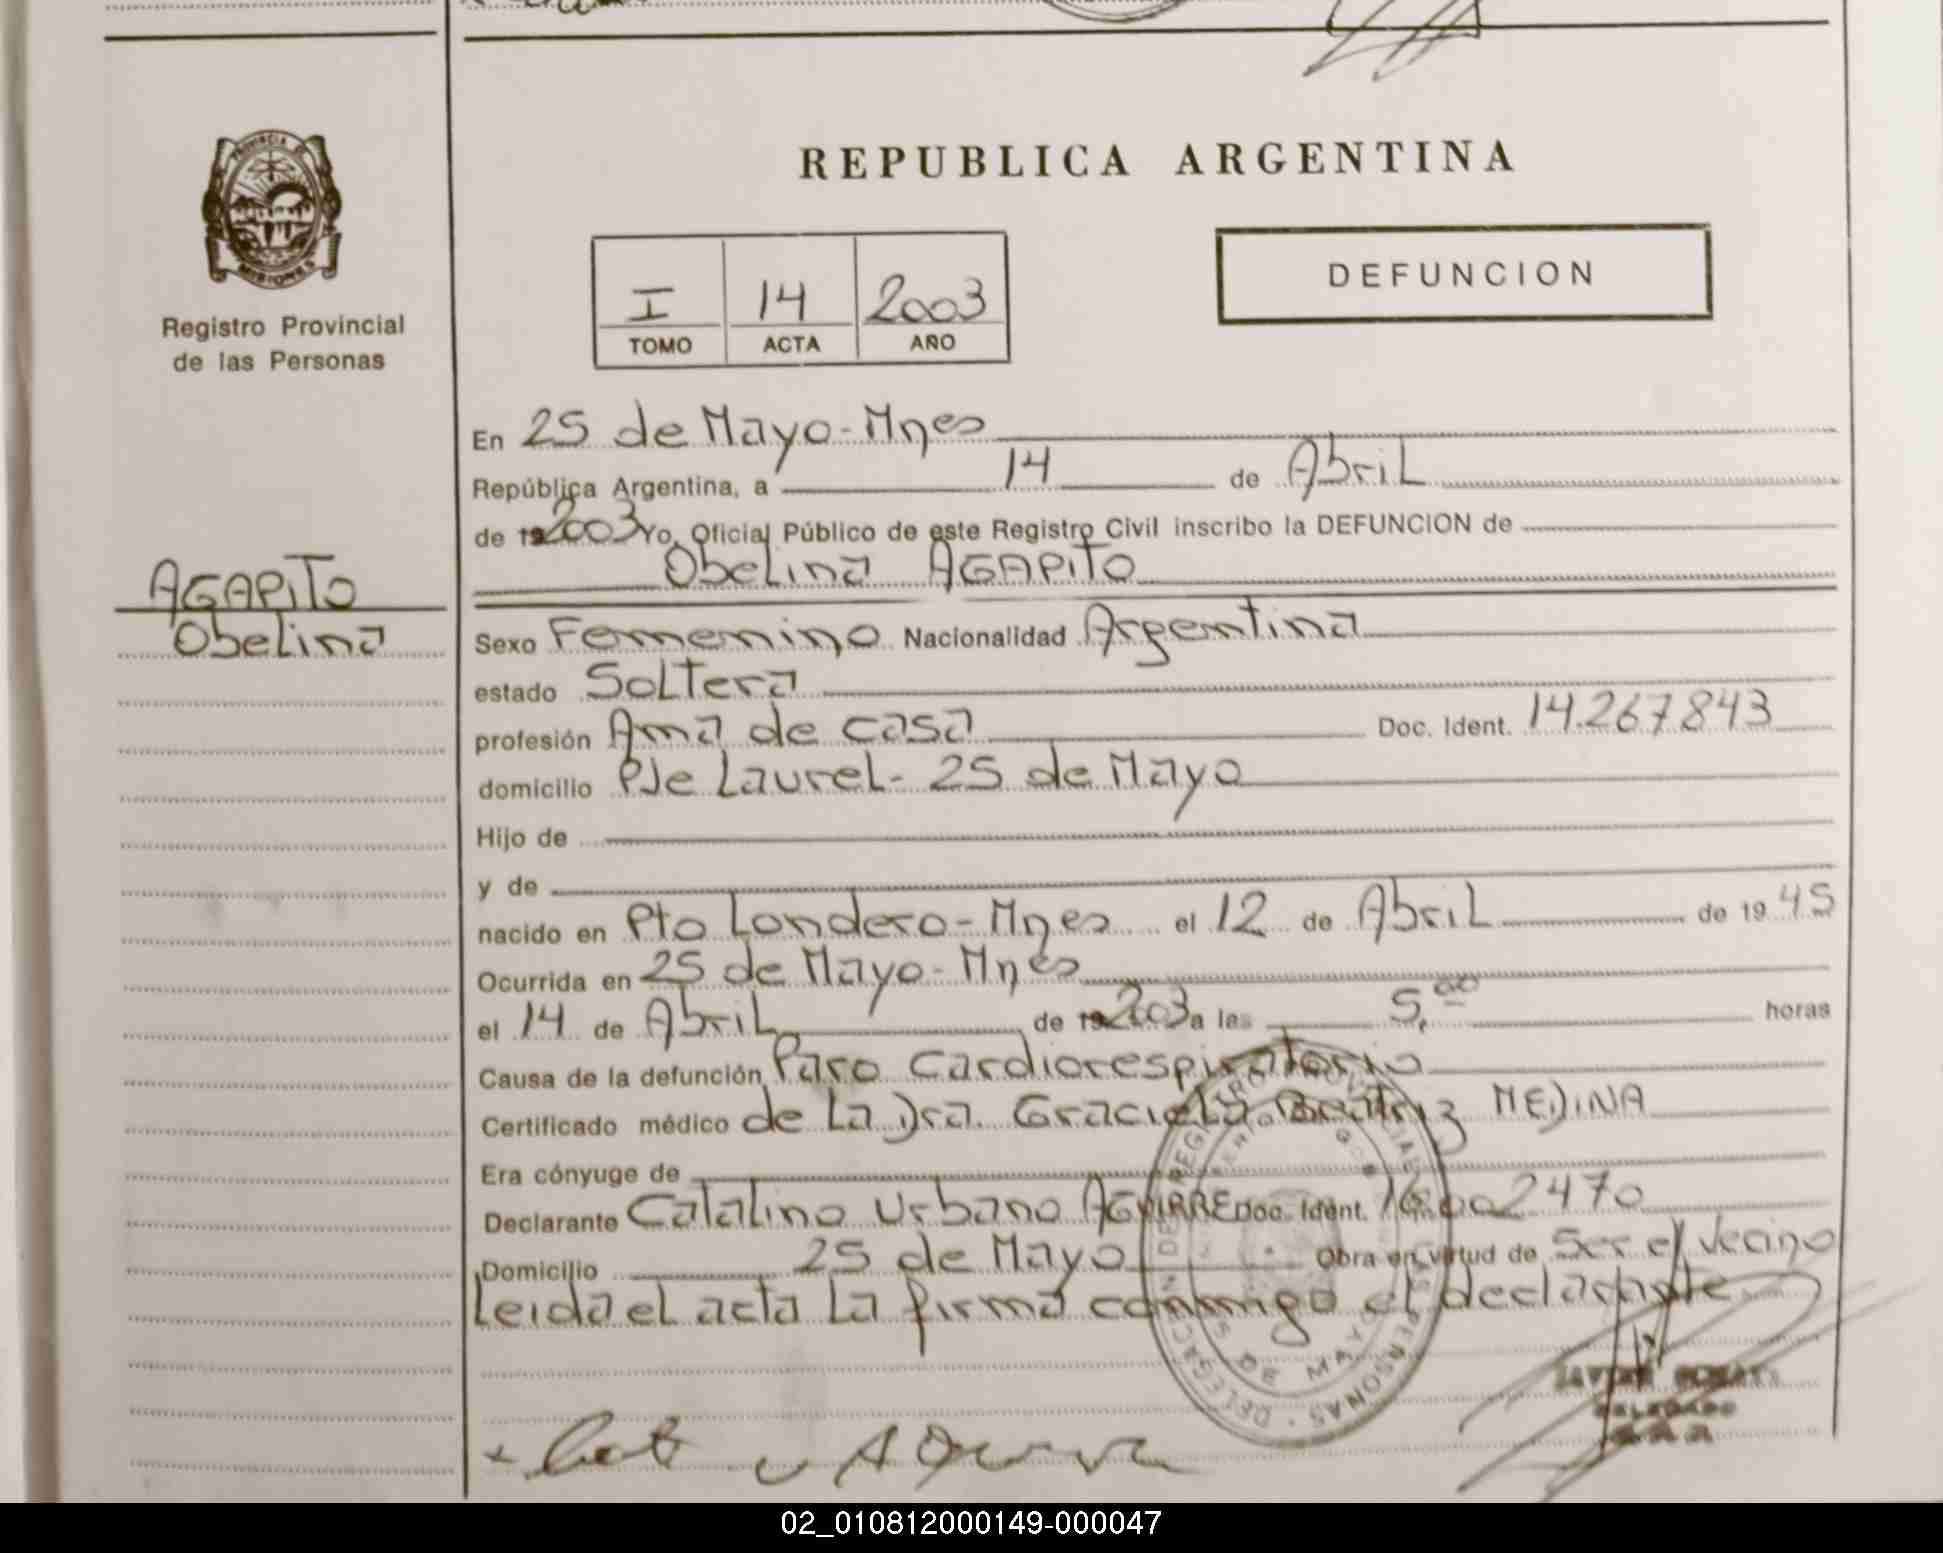 REPUBLICA ARGENTINA
PROVINCIA D
MISIONES
Registro Provincial
de las Personas
I 14 2003
TOMO ACTA AÑO
DEFUNCION
AGAPITO
Obelina
En 25 de Mayo - Mnes
República Argentina, a 14 de Abril
de 19 2003 Yo, Oficial Público de este Registro Civil inscribo la DEFUNCION de
Obelina AGAPITO
Sexo Femenino Nacionalidad Argentina
estado Soltera
profesión Ama de casa Doc. Ident. 14.267.843
domicilio PJe Laurel - 25 de Mayo
Hijo de
y de
nacido en Pto Londero - Mnes el 12 de Abril de 19 45
Ocurrida en 25 de Mayo - Mnes
el 14 de Abril de 19 2003 a las 5,00 horas
Causa de la defunción Paro Cardiorespiratorio
Certificado médico de La Dra. Graciela Beatriz MEDINA
Era cónyuge de
Declarante Catalino Urbano AGUIRRE Doc. Ident.
Domicilio 25 de Mayo Obra en virtud de Ser el vecino
Leida el acta La firma conmigo el declarante
DELEGADO
02_010812000149-000047